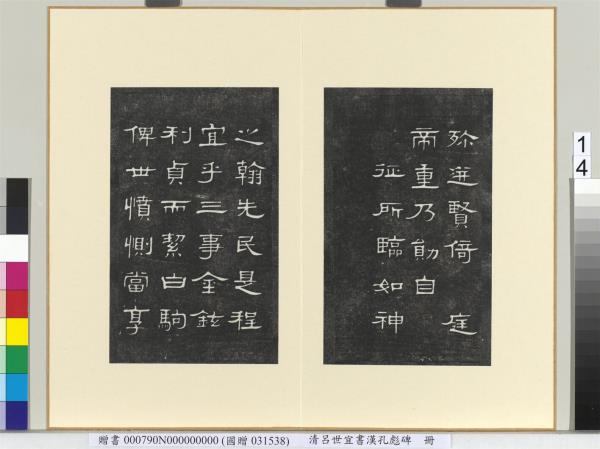 殄迸賢倚　庭
帝重乃勛自
征所臨如神
之翰先民是程
宜乎三事金鉉
利貞而絜白駒
俾世憤惻當享
1
4
贈書 000790N000000000 (國贈 031538)　清呂世宜書漢孔彪碑　冊